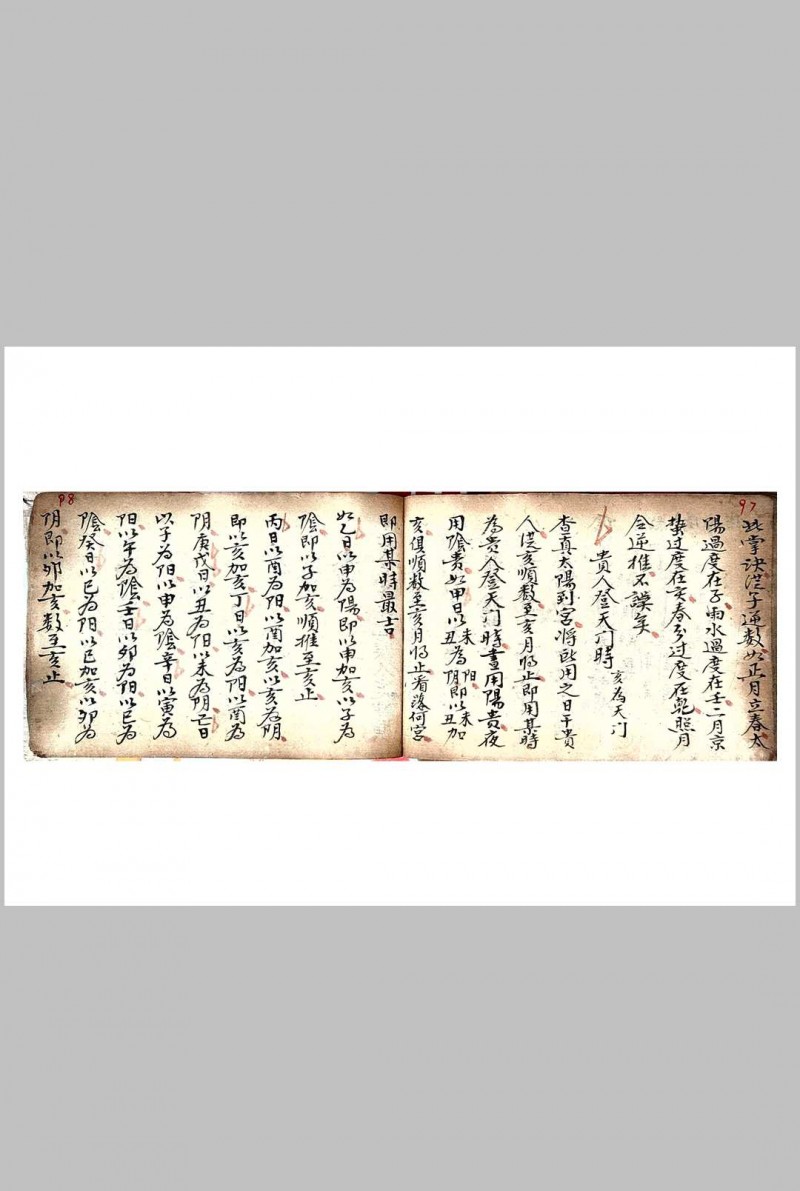 97
此掌訣從子逆数如正月立春太
陽過度在子雨水過度在壬二月京
蛰过度在亥春分过度在乾照月
令逆推不誤矣
貴人登天门時 亥為天门
查真太陽到宫將所用之日干貴
人從亥順数至亥月将止即用某時
為貴人登天门時晝用陽貴夜
用陰貴如甲日以未為陽丑為阴即以未丑加
亥俱順数至亥月将止看落何宫
即用某時最吉
98
如乙日以申為陽即以申加亥以子為
陰即以子加亥順推至亥止
丙日以酉為阳以酉加亥以亥為阴
即以亥加亥丁日以亥為阳以酉為
阴庚戊日以丑為阳以未為阴己日
以子為阳以申為陰辛日以寅為
阳以午為陰壬日以卯為阳以巳為
陰癸日以巳為阳以巳加亥以卯為
阴即以卯加亥数至亥止